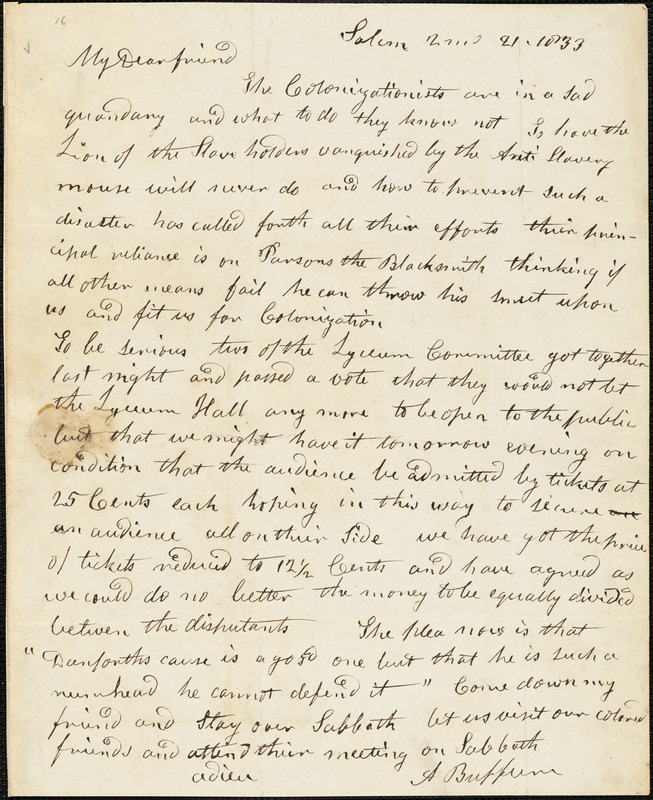 16
Salem 2 mo 21. 1833
My Dear friend
The Colonizationists are in a sad
quandary and what to do they know not To have the
Lion of the Slave holders vanquished by the Anti Slavery
mouse will never do and how to prevent such a
disaster has called forth all their efforts their prin-
cipal reliance is on Parsons the Blacksmith thinking if
all other means fail he can throw his smut upon
us and fit us for Colonization
To be serious two of the Lyceum Committee got together
last night and passed a vote that they would not let
the Lyceum Hall any more to be open to the public
but that we might have it tomorrow evening on
condition that the audience be admitted by tickets at
25 Cents each hoping in this way to secure
an audience all on their side we have got the price
of tickets reduced to 12½ Cents and have agreed as
we could do no better the money to be equally divided
between the disputants The plea now is that
"Danforths cause is a good one but that he is such a
numhead he cannot defend it" Come down my
friend and stay over Sabbath let us visit our colored
friends and attend their meeting on Sabbath
adieu A Buffum